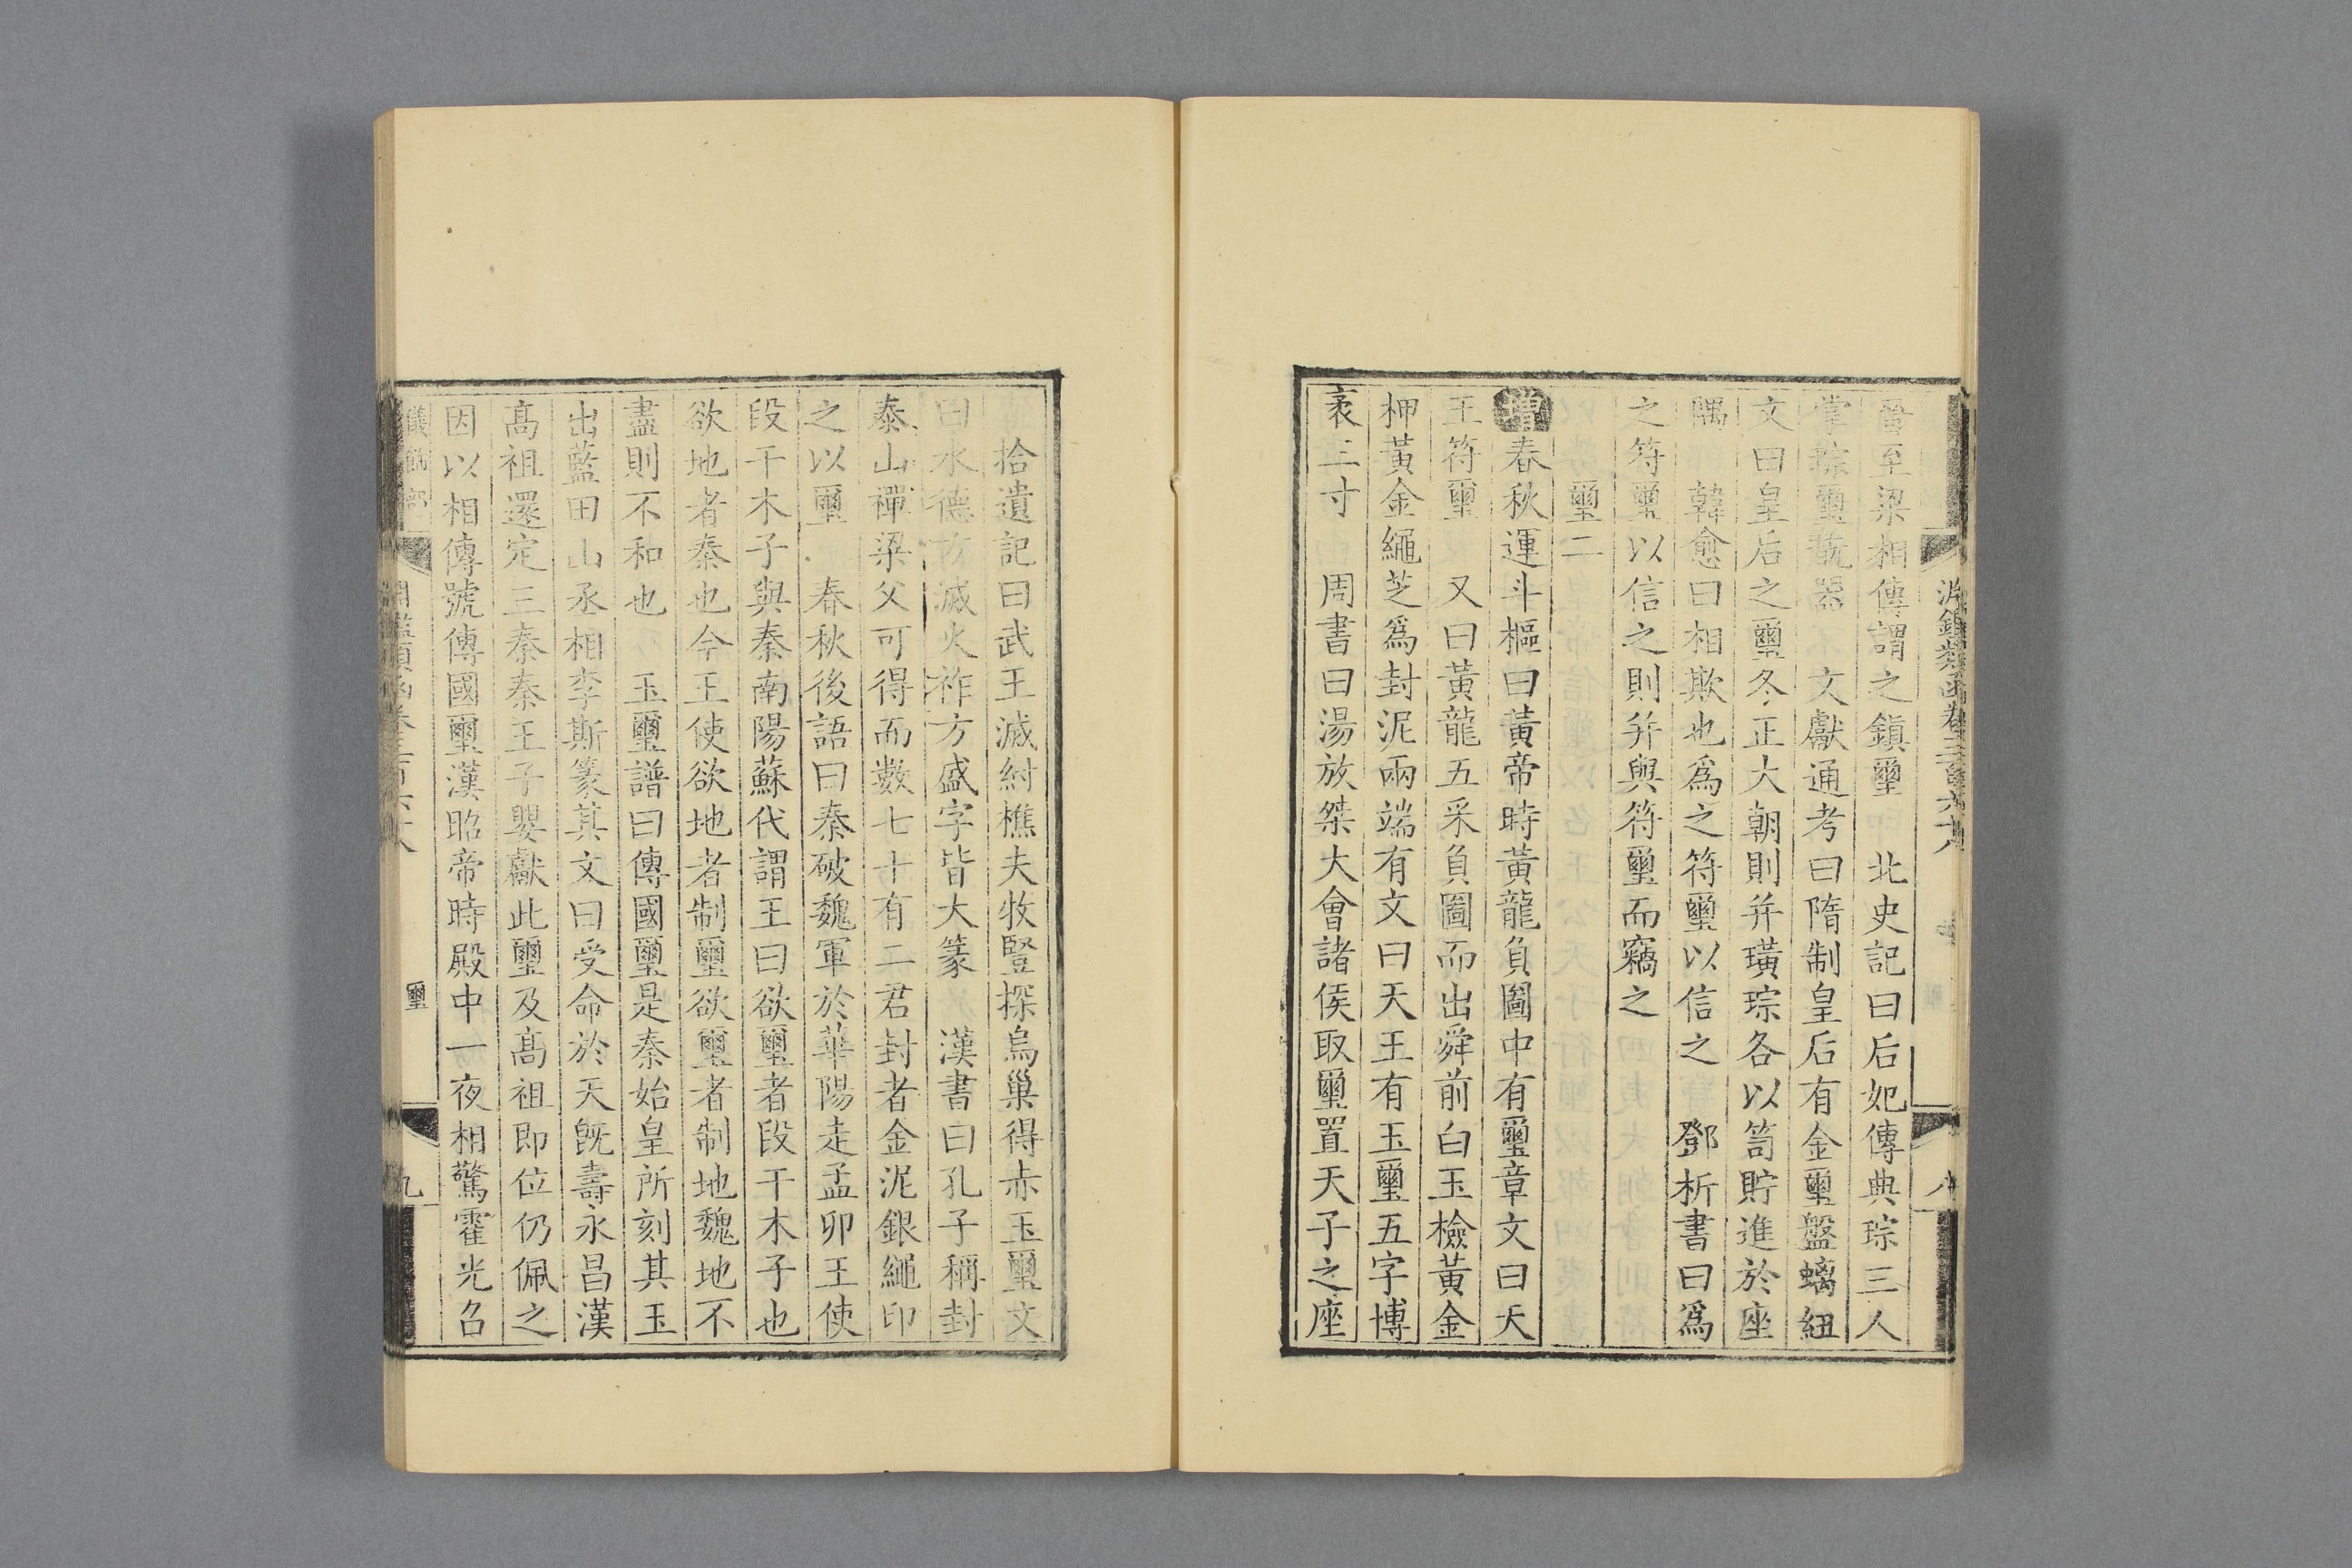 淵鑑類函卷三百六十八
八
晉至梁相傳謂之鎮璽 北史記曰后妃傳典琮三人
掌琮璽翫器 文獻通考曰隋制皇后有金璽盤螭紐
文曰皇后之璽冬正大朝則并璜琮各以笥貯進於座
隅 韓愈曰相欺也爲之符璽以信之 鄧析書曰爲
之符璽以信之則并與符璽而竊之
璽二
增春秋運斗樞曰黃帝時黃龍負圖中有璽章文曰天
王符璽 又曰黃龍五采負圖而出舜前白玉檢黃金
柙黃金繩芝爲封泥兩端有文曰天王有玉璽五字博
袤三寸 周書曰湯放桀大會諸侯取璽置天子之座
拾遺記曰武王滅紂樵夫牧豎探烏巢得赤玉璽文
曰水德方滅火祚方盛字皆大篆 漢書曰孔子稱封
泰山禪梁父可得而數七十有二君封者金泥銀繩印
之以璽 春秋後語曰秦破魏軍於華陽走孟卯王使
段干木子與秦南陽蘇代謂王曰欲璽者段干木子也
欲地者秦也今王使欲地者制璽欲璽者制地魏地不
盡則不和也 玉璽譜曰傳國璽是秦始皇所刻其玉
出藍田山丞相李斯篆其文曰受命於天旣壽永昌漢
高祖還定三秦秦王子嬰獻此璽及高祖即位仍佩之
因以相傳號傳國璽漢昭帝時殿中一夜相驚霍光召
儀飾部
淵鑑類函卷三百六十八
璽
九